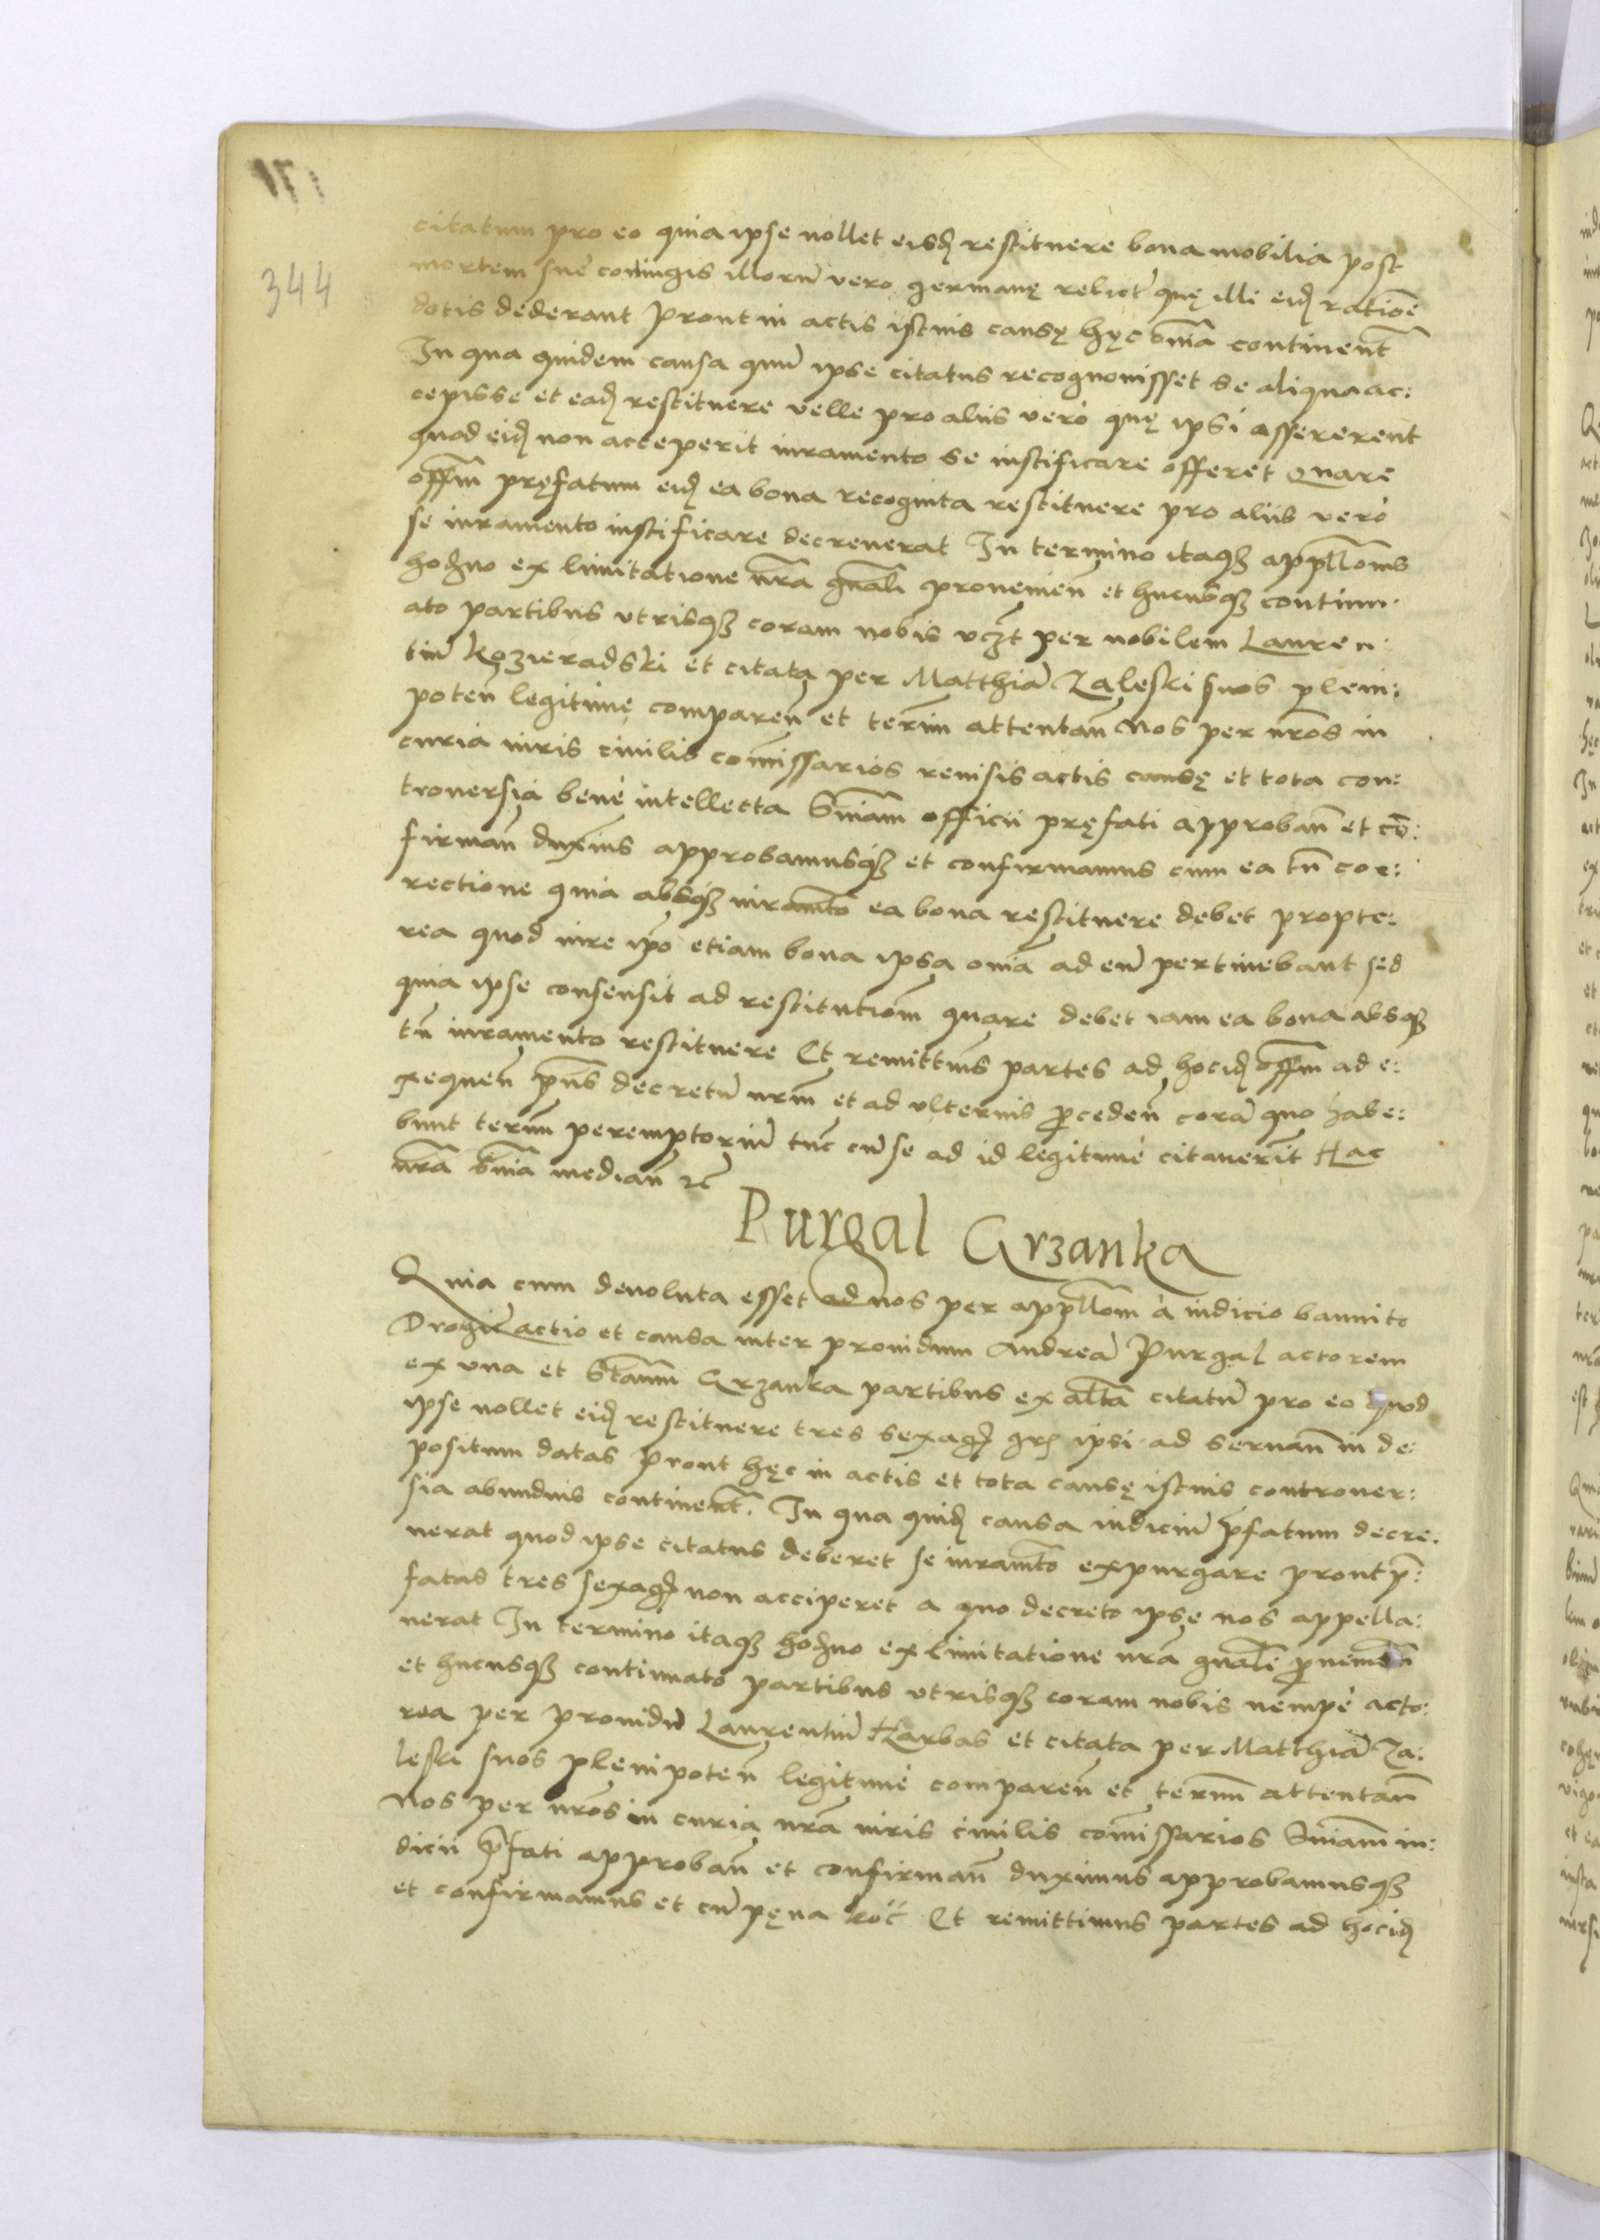 171
344
citatum pro eo quia ipse nollet eisdꝫ restituere bona mobilia post
mortem suę coniugis illorū vero germanę relicť quę illi eidꝫ ratiōe
dotis dederant Prout in actis istius causę hęc om̄ia continent̄
In qua quidem causa quū ipse citatus recognouisset se aliqua ac:
cepisse et eadꝫ restituere velle pro aliis verò quę ipsi assererent
quod eidꝫ non acceperit iuramento se iustificare offeret Quare
offm̄ pręfatum eidꝫ ea bona recognita restituere pro aliis verò
se iuramento iustificare decreuerat In termino itaqꝫ appll̄onis
hodꝛno ex limitatione nr̄a gnāli prouenień et hucusqꝫ continu:
ato partibus vtrisqꝫ coram nobis vczt̄ per nobilem Lauren:
tiū Kozieradski et citata per Matthiā Zaleski suos pleni:
poteń legitimę compareń et term̄ attentań Nos per nr̄os in
curia iuris ciuilis com̄issarios reuisis actis causę et tota con:
trouersia bene intellecta Snīam officii pręfati approbań et cō:
firmań duxim̄s approbamusqꝫ et confirmamus cum ea tn̄ cor:
rectione quia absqꝫ iuramt̄o ea bona restituere debet propte:
rea quod iure ip̄o etiam bona ipsa om̄ia ad eū pertinebant sed
quia ipse consensit ad restitutiōm quare debet iam ea bona absqꝫ
tn̄ iuramento restituere Et remittim̄s partes ad hocidꝫ offm̄ ad e:
xequeń pn̄s decretū nr̄m et ad vlterius p̄cedeń corā quo habe:
bunt term̄ peremptoriū tūc cū se ad id legitime citauerīt Hac
nr̄a snīa mediań ꝛc̄
Purgal Grzanka
Quia cum deuoluta esset ad nos per appll̄om à iudicio bannito
Drogiē actio et causa inter prouidum Andreā Purgal actorem
ex vna et Stānm Grzanka partibus ex alt̄a citatū pro eo quod
ipse nollet eidꝫ restituere tres sexagꝫ grꝫ ipsi ad seruań in de:
positum datas Prout hęc in actis et tota causę istius controuer:
sia abundius continent̄. In qua quidꝫ causa iudiciū p̄fatum decre:
uerat quod ipse citatus deberet se iuramt̄o expurgare prout p̄:
fatas tres sexagꝫ non acciperet a quo decreto ipse nos appella:
uerat In termino itaqꝫ hodꝛno ex limitatione nr̄a gnāli p̄uenień
et hucusqꝫ continuato partibus vtrisqꝫ coram nobis nempè acto:
rea per prouidū Laurentiū Harbas et citata per Matthiā Za:
leski suos plenipoteń legitime compareń et term̄ attentań
Nos per nr̄os in curia nr̄a iuris ciuilis com̄issarios Snīam iu:
dicii p̄fati approbań et confirmań duximus approbamusqꝫ
et confirmamus et cū pęna roć Et remittimus partes ad hocidꝫ